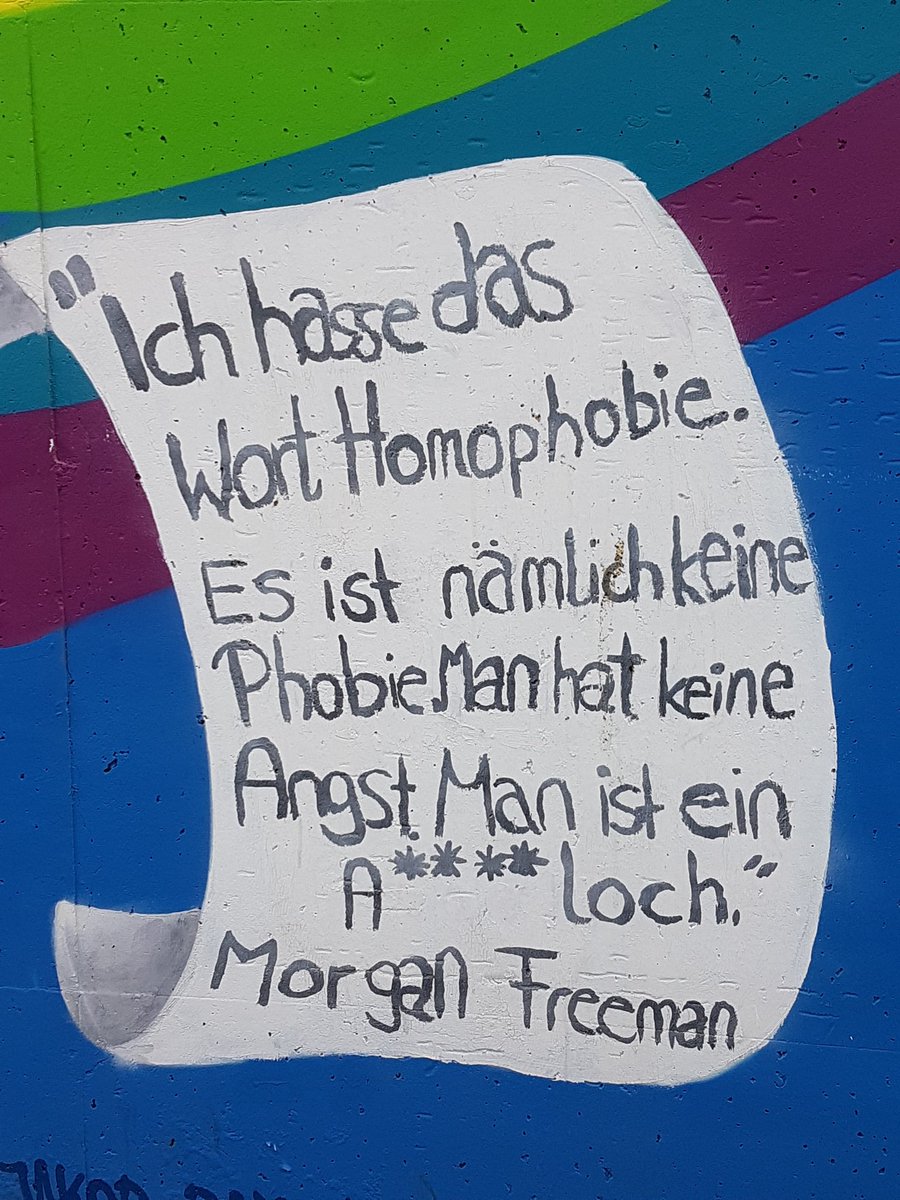 "Ich hasse das
Wort Homophobie.
Es ist nämlich keine
Phobie Man hat keine
Angst. Man ist ein
A****loch."
Morgan Freeman